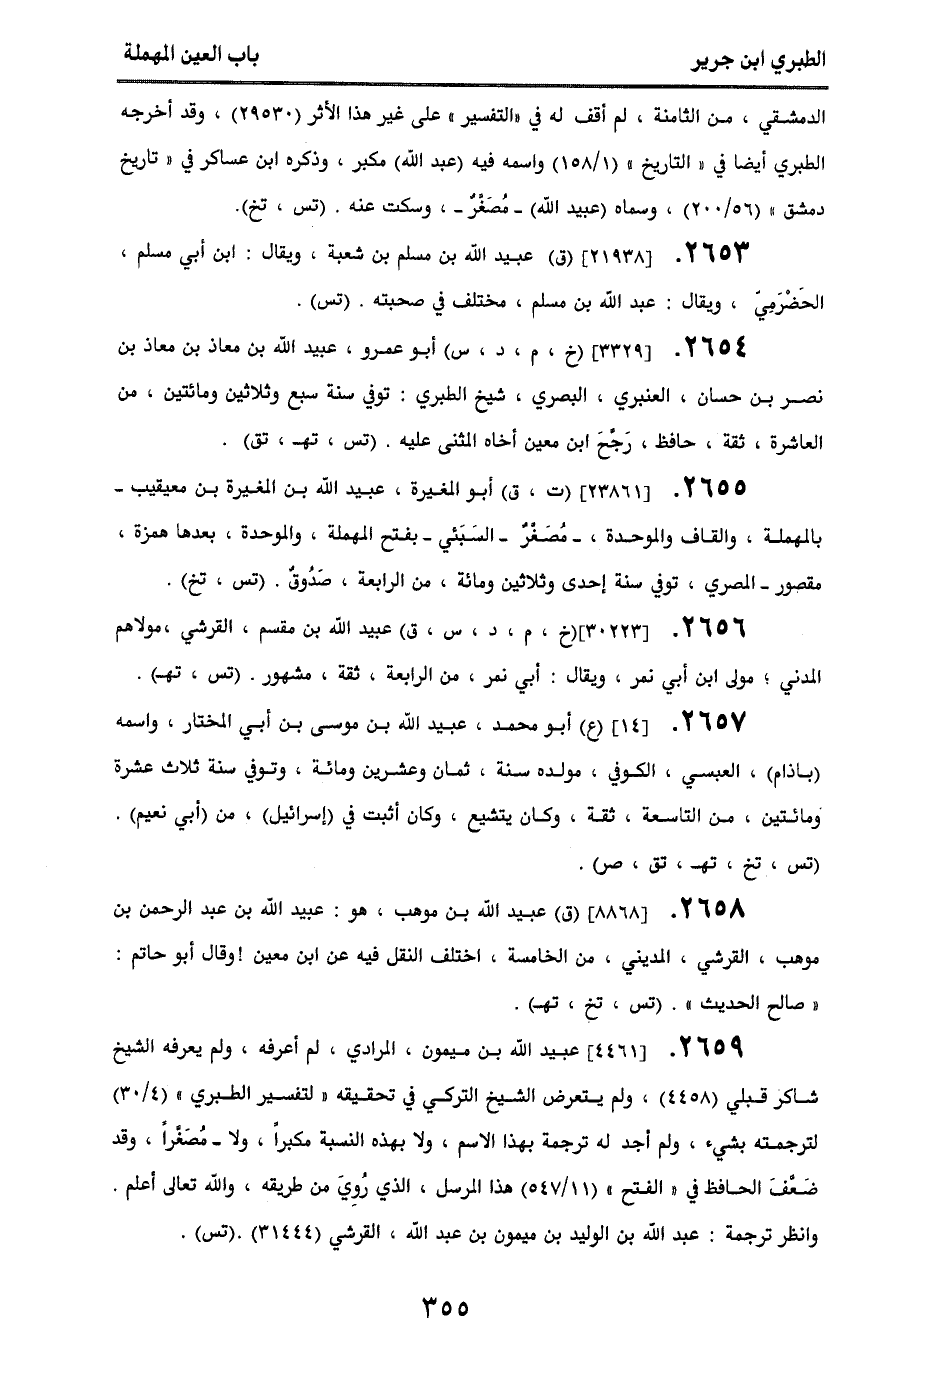 الطبري ابن جرير
باب العين المهملة
الدمشقي ، من الثامنة ، لم أقف له في «التفسير» على غير هذا الأثر (٢٩٥٣٠) ، وقد أخرجه
الطبري أيضا في « التاريخ » (١٥٨/١) واسمه فيه (عبد الله) مكبر ، وذكره ابن عساكر في « تاريخ
دمشق » (٢٠٠/٥٦) ، وسماه (عبيد الله) ـ مُصَغَّرٌ ـ ، وسكت عنه . (تس ، تخ).
٢٦٥٣. [٢١٩٣٨] (ق) عبيد الله بن مسلم بن شعبة ، ويقال : ابن أبي مسلم ،
الحَضْرَمِيّ ، ويقال : عبد الله بن مسلم ، مختلف في صحبته . (تس) .
٢٦٥٤. [٣٣٢٩] (خ ، م ، د ، س) أبو عمرو ، عبيد الله بن معاذ بن معاذ بن
نصر بن حسان ، العنبري ، البصري ، شيخ الطبري : توفي سنة سبع وثلاثين ومائتين ، من
العاشرة ، ثقة ، حافظ ، رَجَّحَ ابن معين أخاه المثنى عليه . (تس ، تهـ ، تق) .
٢٦٥٥. [٢٣٨٦١] (ت ، ق) أبو المغيرة ، عبيد الله بن المغيرة بن معيقيب ـ
بالمهملة ، والقاف والموحدة ، ـ مُصَغَّرٌ ـ السَبَئي ـ بفتح المهملة ، والموحدة ، بعدها همزة ،
مقصور ـ المصري ، توفي سنة إحدى وثلاثين ومائة ، من الرابعة ، صَدُوقٌ . (تس ، تخ) .
٢٦٥٦. [٣٠٢٢٣](خ ، م ، د ، س ، ق) عبيد الله بن مقسم ، القرشي ،مولاهم
المدني ؛ مولى ابن أبي نمر ، ويقال : أبي نمر ، من الرابعة ، ثقة ، مشهور . (تس ، تهـ) .
٢٦٥٧. [١٤] (ع) أبو محمد ، عبيد الله بن موسى بن أبي المختار ، واسمه
(باذام) ، العبسي ، الكوفي ، مولده سنة ، ثمان وعشرين ومائة ، وتوفي سنة ثلاث عشرة
ومائتين ، من التاسعة ، ثقة ، وكان يتشيع ، وكان أثبت في (إسرائيل) ، من (أبي نعيم) .
(تس ، تخ ، تهـ ، تق ، صر) .
٢٦٥٨. [٨٨٦٨] (ق) عبيد الله بن موهب ، هو : عبيد الله بن عبد الرحمن بن
موهب ، القرشي ، المديني ، من الخامسة ، اختلف النقل فيه عن ابن معين !وقال أبو حاتم :
« صالح الحديث » . (تس ، تخ ، تهـ) .
٢٦٥٩. [٤٤٦١] عبيد الله بن ميمون ، المرادي ، لم أعرفه ، ولم يعرفه الشيخ
شاكر قبلي (٤٤٥٨) ، ولم يتعرض الشيخ التركي في تحقيقه « لتفسير الطبري » (٣٠/٤)
لترجمته بشيء ، ولم أجد له ترجمة بهذا الاسم ، ولا بهذه النسبة مكبراً ، ولا ـ مُصَغَّراً ، وقد
ضَعَّفَ الحافظ في « الفتح » (٥٤٧/١١) هذا المرسل ، الذي رُوِيَ من طريقه ، والله تعالى أعلم .
وانظر ترجمة : عبد الله بن الوليد بن ميمون بن عبد الله ، القرشي (٣١٤٤٤) .(تس) .
٣٥٥